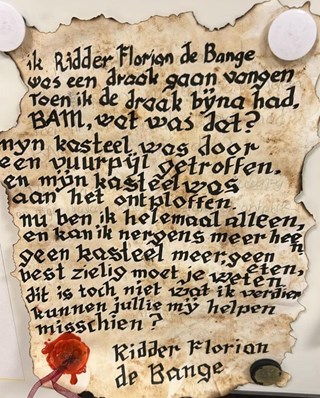 ik Ridder Florian de Bange
was een draak gaan vangen
Toen ik de draak bijna had,
BAM, wat was dat?
mijn kasteel was door
een vuurpijl getroffen,
en mijn kasteel was
aan het ontploffen.
nu ben ik helemaal alleen,
en kan ik nergens meer heen
geen kasteel meer, geen eten,
best zielig moet je weten
dit is toch niet wat ik verdien
kunnen jullie mij helpen
misschien?
Ridder Florian
de Bange